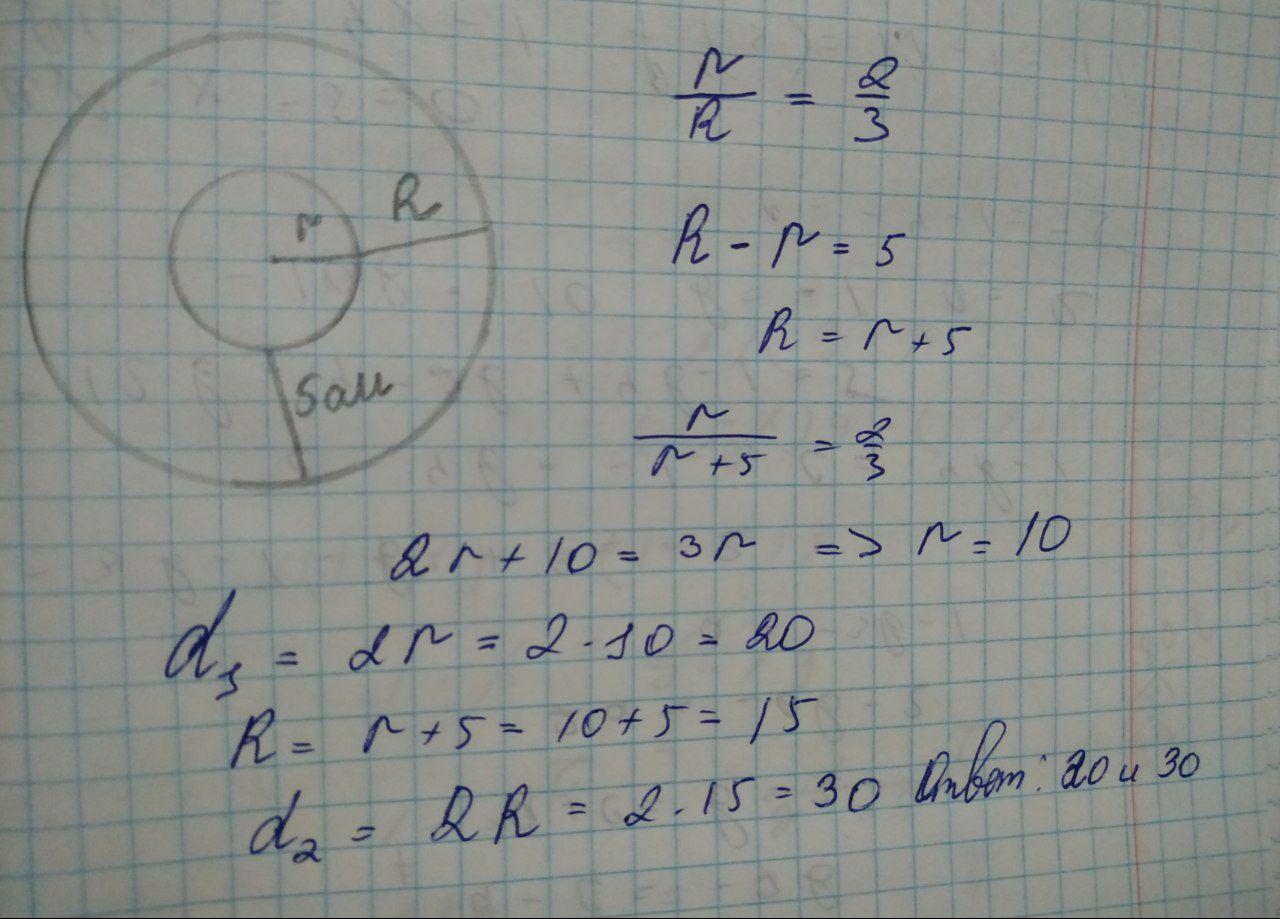 r/R = 2/3
r
R
R - r = 5
R = r + 5
5см
r/(r + 5) = 2/3
2r + 10 = 3r => r = 10
d₁ = 2r = 2 · 10 = 20
R = r + 5 = 10 + 5 = 15
d₂ = 2R = 2 · 15 = 30 Ответ: 20 и 30